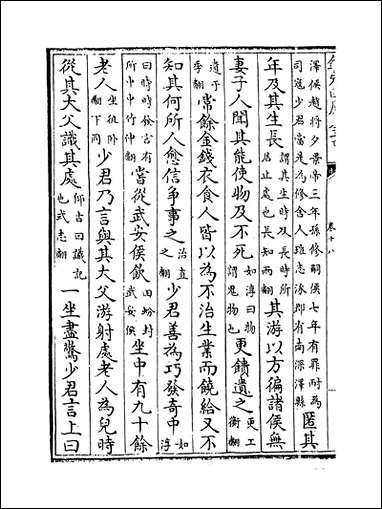 卷十八
澤侯趙将夕景帝三年孫修嗣侯七年有罪耐為司寇少君當是為修舍人班志涿郡有南深澤縣匿其
年及其生長謂其生時及長時所居止處也長知兩翻其游以方徧諸侯無
妻子人聞其能使物及不死如淳曰物謂鬼物也更饋遺之更工衡翻
遺于季翻常餘金錢衣食人皆以為不治生業而饒給又不
知其何所人愈信争事之治直之翻少君善為巧發奇中如淳
曰時時發言有所中中竹仲翻嘗從武安侯飲田蚡封武安侯坐中有九十餘
老人坐徂卧翻下同少君乃言與其大父游射處老人為兒時
從其大父識其處師古曰識記也式志翻一坐盡驚少君言上曰